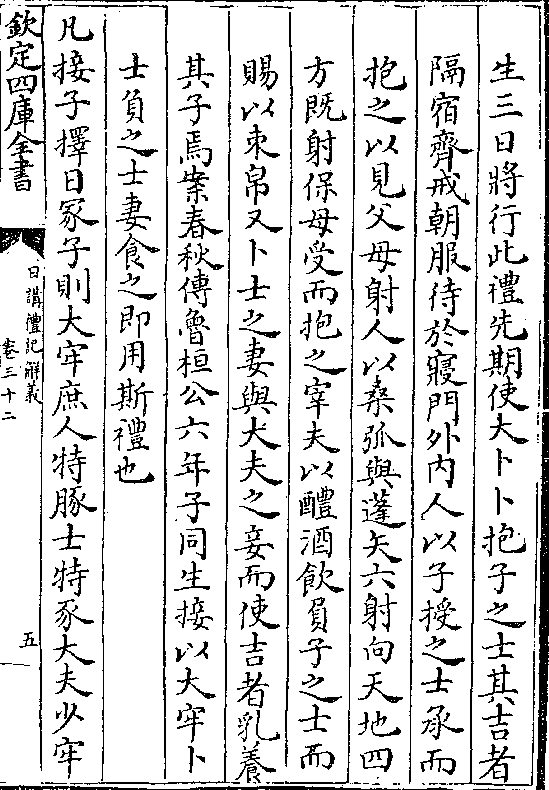 生三日將行此禮先期使大卜卜抱子之士其吉者
隔宿齊戒朝服待於寢門外内人以子授之士承而
抱之以見父母射人以桑弧與蓬矢六射向天地四
方既射保母受而抱之宰夫以醴酒飲負子之士而
賜以束帛又卜士之妻與大夫之妾而使吉者乳養
其子焉案春秋傳魯桓公六年子同生接以大牢卜
士負之士妻食之即用斯禮也
凡接子擇日冢子則大牢庶人特豚士特豕大夫少牢
欽定四庫全書
日講禮記解義
卷三十二
五